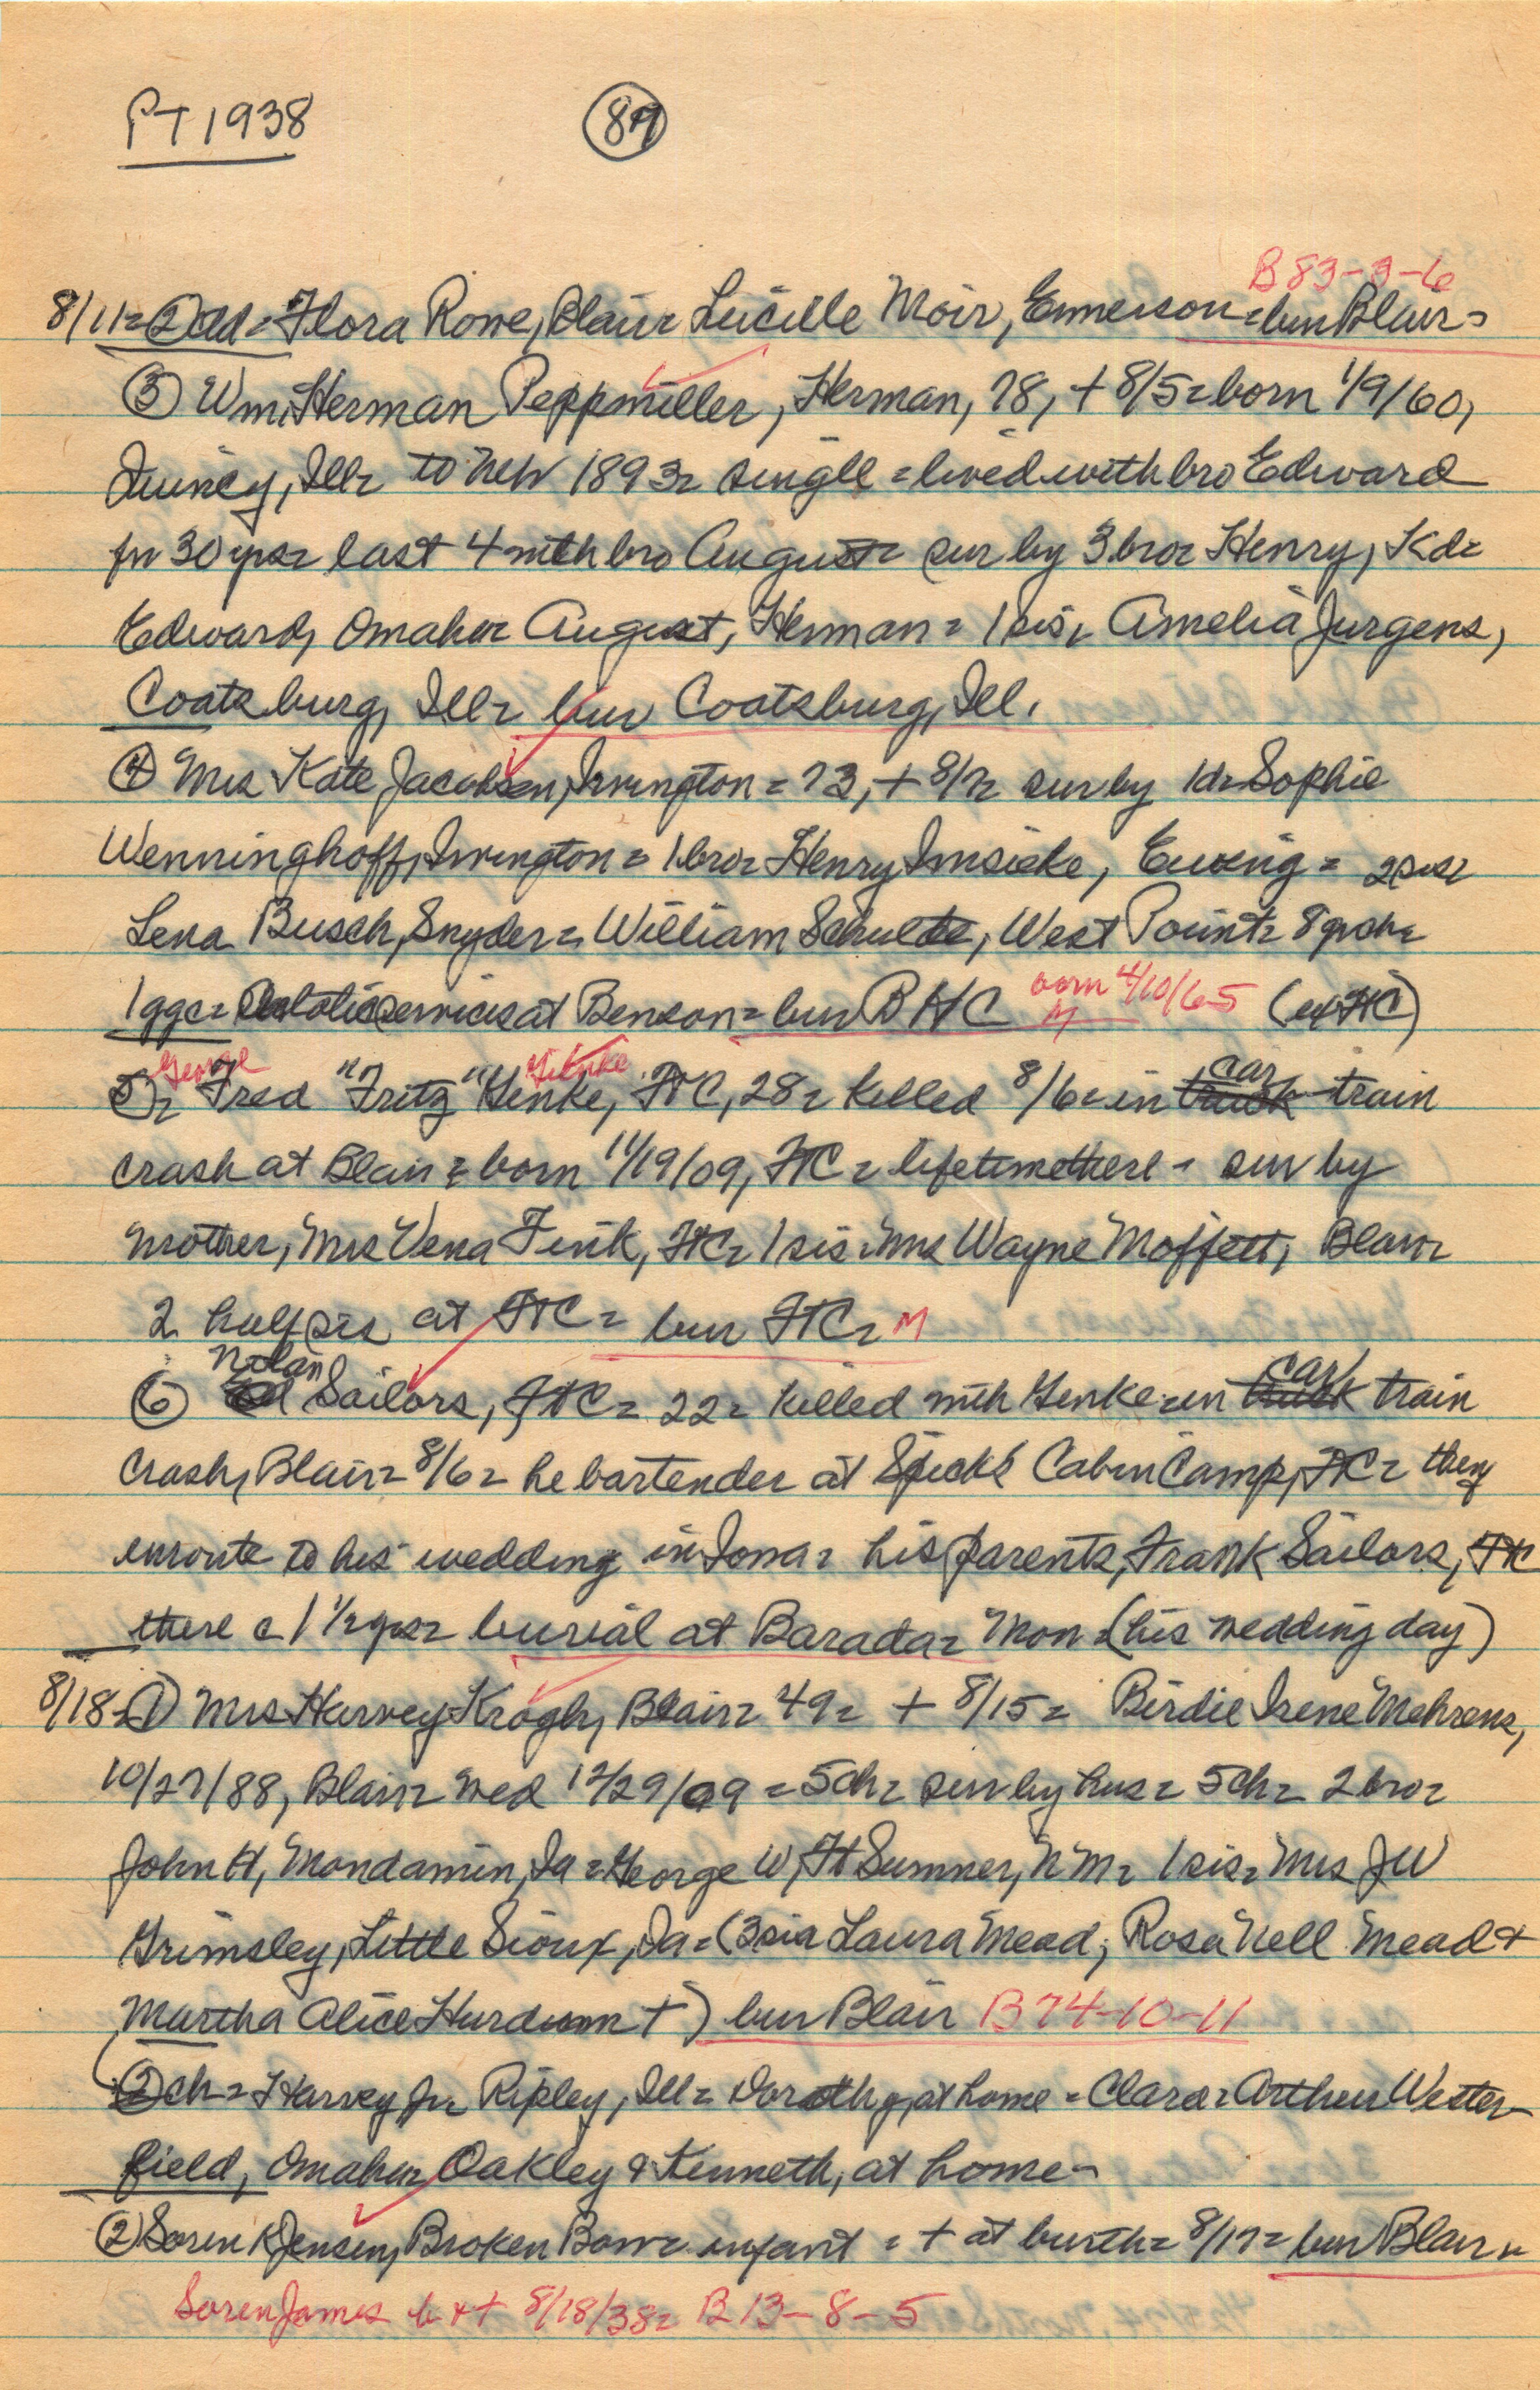 PT 1938
89
B 83-3-6
8/11= ② add = Flora Rowe, Blair= Lucille Moir, Emmerson = bur Blair=
③ Wm. Herman Peppmiller, Herman, 78, + 8/5= born 1/9/60,
Quincy, Ill= to Neb 1893= single = lived with bro Edward
for 30 yrs= last 4 with bro August= sur by 3 bro= Henry, Kd=
Edward, Omaha= August, Herman = 1 sis= Amelia Jurgens,
Coatsburg, Ill= bur Coatsburg, Ill.
④ Mrs Kate Jacobsen, Irvington = 73, + 8/7= sur by 1d= Sophie
Wenninghoff, Irvington = 1 bro= Henry Imsieke, Ewing = 2 sis=
Lena Busch, Snyder= William Schulte, West Point= 8 grch=
1 ggc= services at Benson = bur BHC M born 4/10/65 (ex FtC)
George Gehnke
⑤= Fred "Fritz" Genke, FtC, 28= killed 8/6= in truck car train
crash at Blair = born 11/19/09, FtC = lifetime there = sur by
mother, Mrs Vena Fink, FtC= 1 sis= Mrs Wayne Moffett, Blair=
2 half sis at FtC= bur FtC= M
Nolan
⑥ Ed Sailors, FtC= 22= killed with Genke in truck car train
crash, Blair= 8/6= he bartender at Spick's Cabin Camp, FtC= they
enroute to his wedding in Iowa= his parents, Frank Sailors, FtC
there c 1 1/2 yrs= burial at Barada= Mon = (his wedding day)
8/18= ① Mrs Harvey Krogh, Blair= 49= + 8/15= Birdie Irene Mehrens,
10/27/88, Blair= wed 12/29/09 = 5ch= sur by hus= 5ch= 2 bro=
John H, Mondamin, Ia = George W, Ft Sumner, N M= 1 sis= Mrs J W
Grimsley, Little Sioux, Ia= (3 sis Laura Mead, Rosa Nell Mead +
Martha Alice Hurdum +) bur Blair B 74-10-11
ch = Harvey Jr= Ripley, Ill= Dorothy, at home = Clara= Arthur Wester-
field, Omaha= Oakley & Kenneth, at home=
② Soren K Jensen, Broken Bow= infant = + at birth= 8/17= bur Blair=
Soren James b & + 8/18/38= B 13-8-5